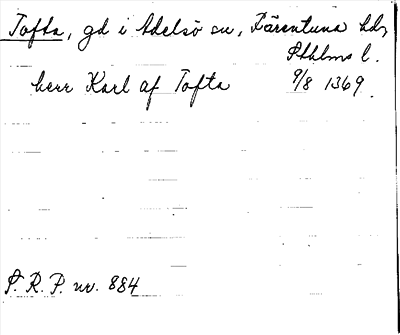 Tofta, gd i Adelsö sn, Färentuna hd,
Sthlms l.
herr Karl af Tofta 9/8 1369
S. R. P. nr. 884